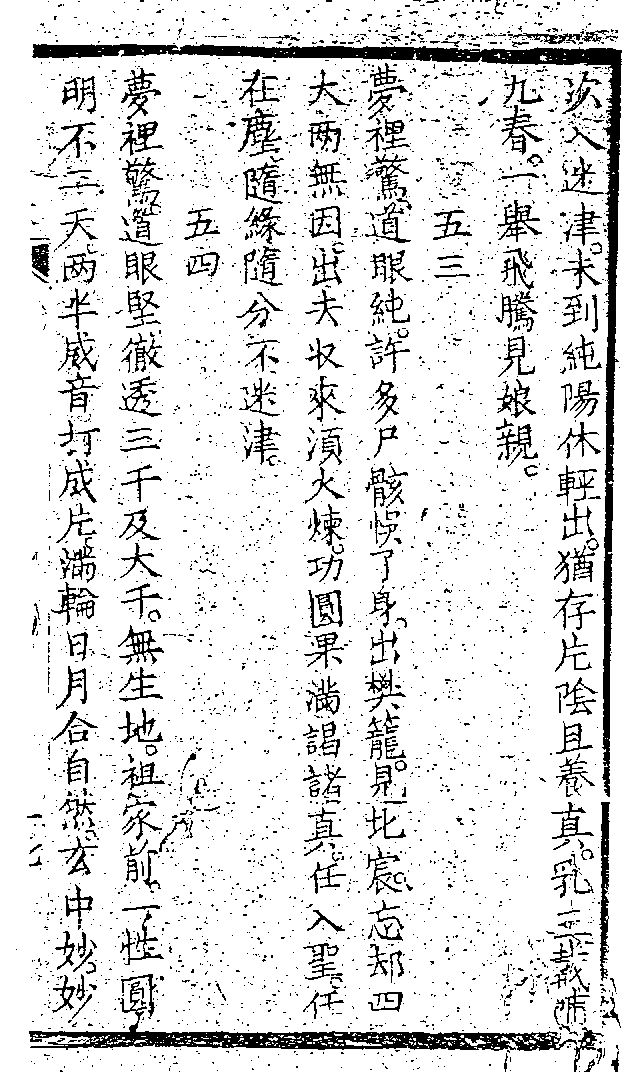 次入迷津。未到純陽休輕出。猶存片陰且養真。乳三載哺
九春。一舉飛騰見娘親。
五三
夢裡驚。道眼純。許多尸骸悞了身。出樊籠。見北宸。忘却四
大兩無因。出去收來湏火煉。功圓果滿謁諸真。任入聖。任
在塵。隨緣隨分不迷津。
五四
夢裡驚。道眼堅。徹透三千及大千。無生地。祖家前。一性圓
明不二天。两半威音打成片。滿輪日月合自然。玄中妙。妙